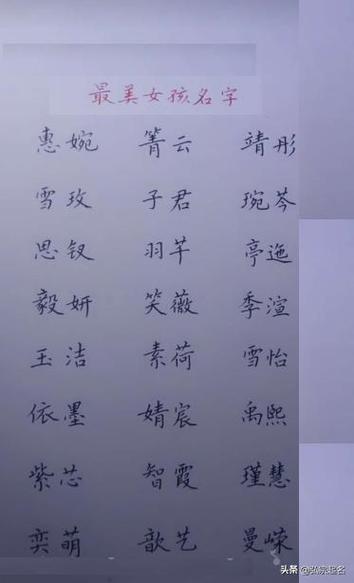 最美女孩名字
惠婉 箐云 靖彤
雪玫 子君 琬芩
思钗 羽芊 亭迤
毅妍 笑薇 季渲
玉洁 素荷 雪怡
依墨 婧宸 禹熙
紫芯 智霞 瑾慧
奕萌 歆艺 曼嵘
头条 @弘宸起名